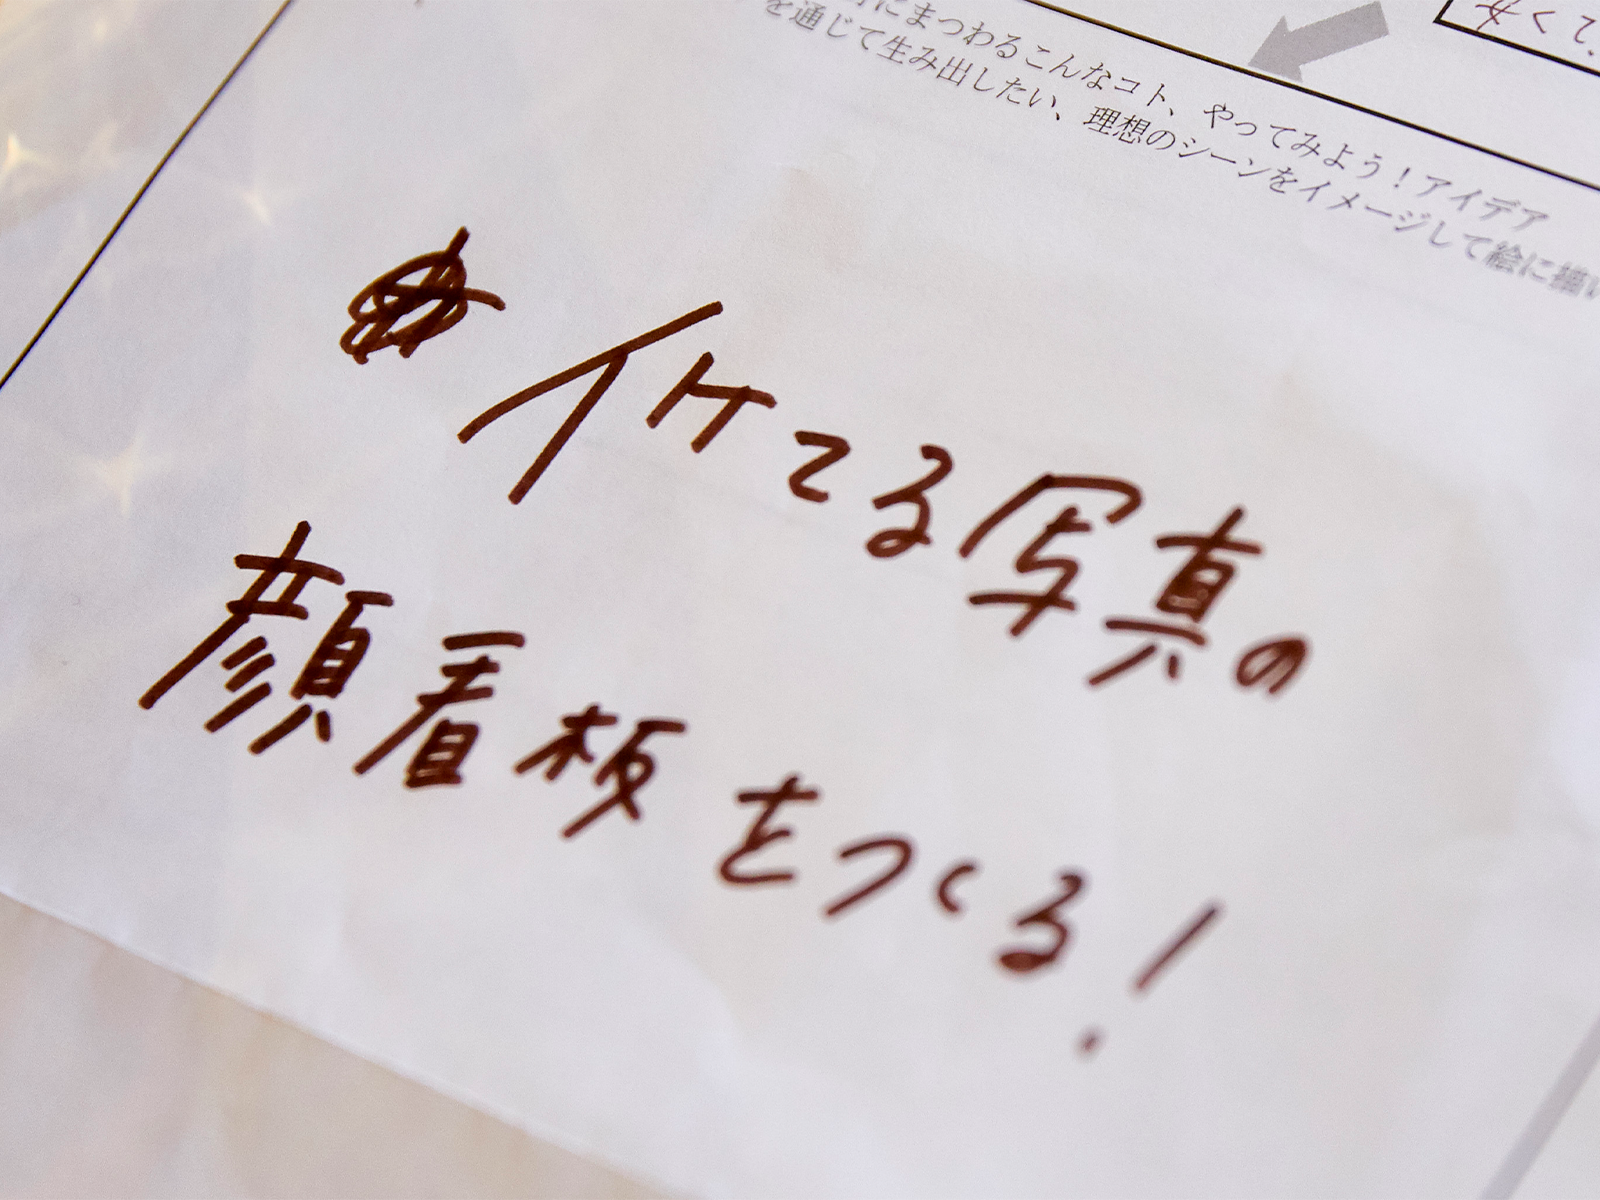 安くて
にまつわるこんなコト、やってみよう！アイデア
を通じて生み出したい、理想のシーンをイメージして絵に描い
イケてる写真の
顔看板をつくる！